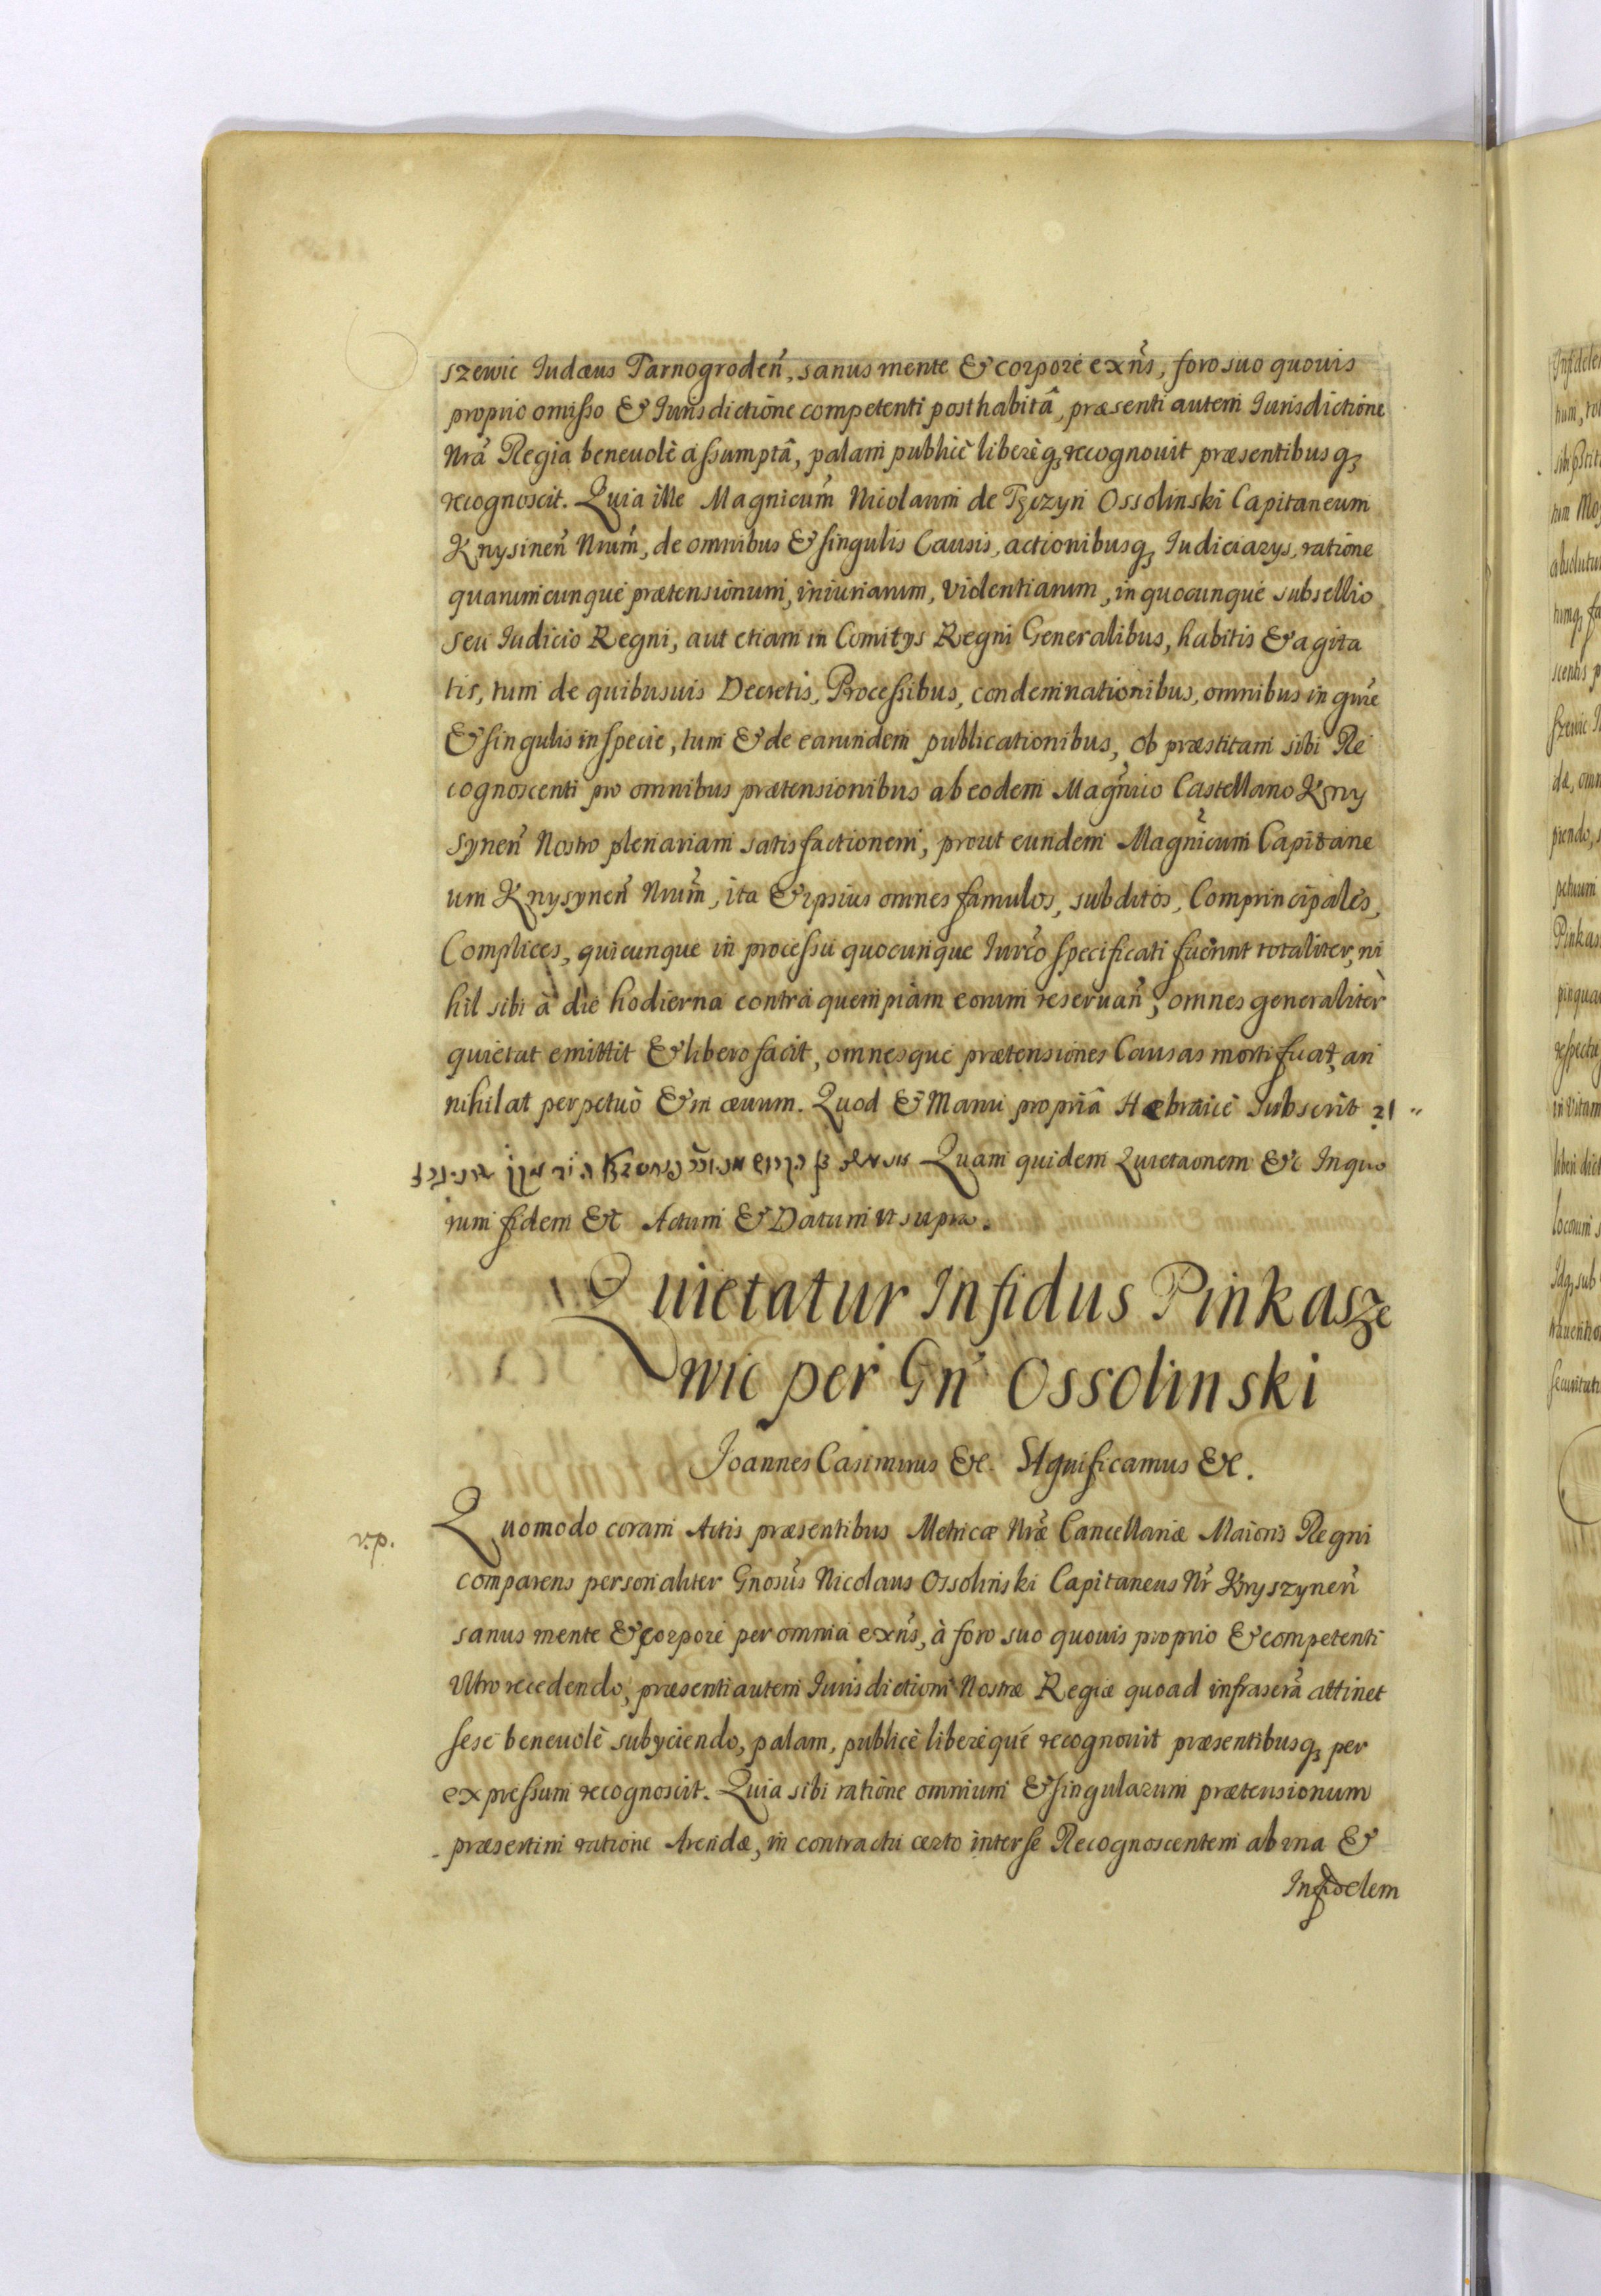 szewic Iudæus Tarnogroden̄, sanus mente & corpore exn̄s, foro suo quouis
proprio omisso & Iurisdictione competenti posthabitâ, præsenti autem Iurisdictione
Nrâ Regia beneuolè assumptâ, palam publicè liberèq₃ recognouit præsentibusq₃
recognoscit. Quia ille Magnicum̄ Nicolaum de Tęczyn Ossolinski Capitaneum
Knysinen̄ Nrum̄, de omnibus & singulis Causis, actionibusq₃ Iudiciarys, ratione
quarumcunque prætensionum, iniuriarum, violentiarum, in quocunque subsellio
seu Iudicio Regni, aut etiam in Comitys Regni Generalibus, habitis & agita
tis, tum de quibusuis Decretis, Processibus, condemnationibus, omnibus in gn̄re
& singulis in specie, tum & de earundem publicationibus, ob præstitam sibi Re
cognoscenti pro omnibus prætensionibus ab eodem Magn̄ico Castellano Kny
synen̄ Nostro plenariam satisfactionem, prout eundem Magn̄icum Capitane
um Knysynen̄ Nrum̄, ita & ipsius omnes famulos, subditos, Comprincipales,
Complices, quicunque in processu quocunque Iurẽo specificati fuerint totaliter, ni
hil sibi à die hodierna contra quempiam eorum reseruan̄, omnes generaliter
quietat emittit & libero facit, omnesque prætensiones Causas mortificat, an
nihilat perpetuò & in æuum. Quod & Manu propriâ Hæbraicè Subscrib
Quam quidem Quietaonem &c In quo
rum fidem &c Actum & Datum ut supra.
Quietatur Infidus Pinkasze
wic per Gn̄ Ossolinski
Joannes Casimirus &c. Significamus &c.
v.p.
Quomodo coram Actis præsentibus Metricæ Nræ̃ Cancellariæ Maioris Regni
comparens personaliter Gnosus̄ Nicolaus Ossolinski Capitaneus Nr̃ Knyszynen̄
sanus mente & corpore per omnia exn̄s, à foro suo quouis proprio & competenti
Vltro recedendo, præsenti autem Iurisdictioni Nostræ Regiæ quoad infrascrã attinet
sese beneuolè subyciendo, palam, publicè liberèque recognouit præsentibusq₃ per
expressum recognoscit. Quia sibi ratione omnium & singularum prætensionum
præsertim ratione Arendæ, in contractu certo inter se Recognoscentem ab una &
Infidelem